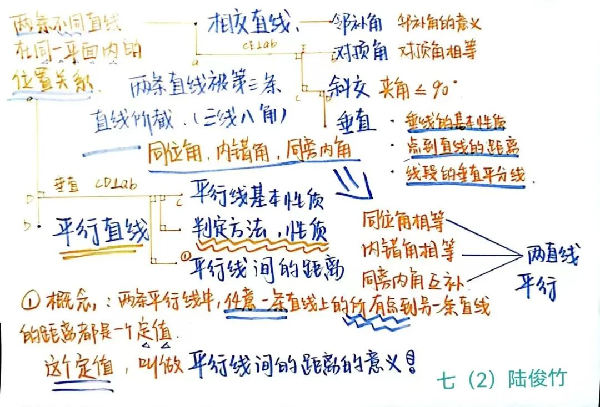 两条不同直线
在同一平面内的
位置关系.
相交直线
CD⊥ab
a
c
D
邻补角 邻补角的意义
对顶角 对顶角相等
斜交 夹角≤90°
垂直
·垂线的基本性质
·点到直线的距离
·线段的垂直平分线.
两条直线被第三条
直线所截.(三线八角)
同位角,内错角,同旁内角
垂直 CD⊥ab
b
c
平行直线
平行线基本性质
判定方法,性质
①
平行线间的距离
同位角相等
内错角相等
同旁内角互补.
两直线
平行
①概念:两条平行线中,任意一条直线上的所有点到另一条直线
的距离都是一个定值.
这个定值,叫做平行线间的距离的意义!
七(2)陆俊竹